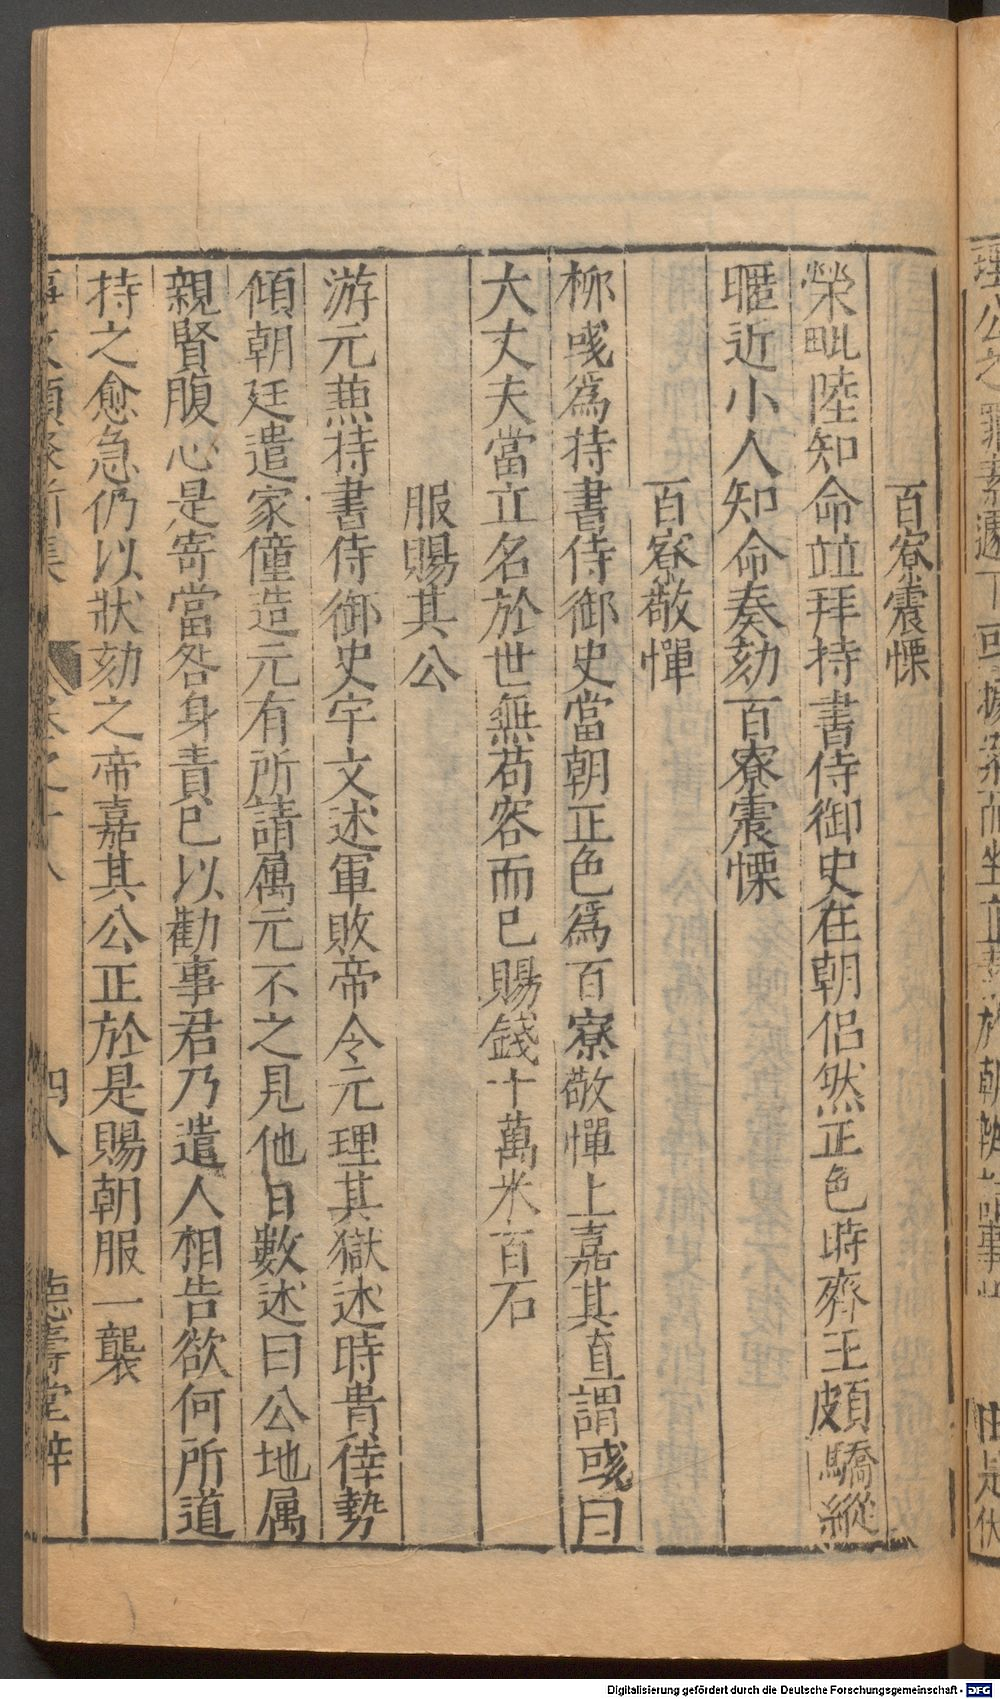 百寮震慄
榮毗陸知命竝拜持書侍御史在朝侶然正色時齊王頗驕縱
暱近小人知命奏劾百寮震慄
百寮敬憚
柳彧爲持書侍御史當朝正色爲百寮敬憚上嘉其直謂彧曰
大丈夫當立名於世無苟容而已賜錢十萬米百石
服賜其公
游元蕭持書侍御史宇文述軍敗帝令元理其獄述時貴倖勢
傾朝廷遣家僮造元有所請属元不之見他日數述曰公地属
親賢腹心是寄當咎身責已以勸事君乃遣人相告欲何所道
持之愈急仍以狀劾之帝嘉其公正於是賜朝服一襲
四八
德壽堂梓
Digitalisierung gefördert durch die Deutsche Forschungsgemeinschaft - DFG